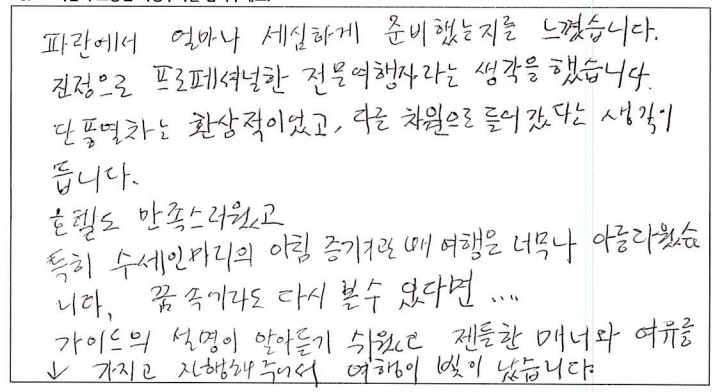 파란에서 얼마나 세심하게 준비했는지를 느꼈습니다.
진정으로 프로페셔널한 전문여행자라는 생각을 했습니다.
단풍열차는 환상적이었고, 다른 차원으로 들어갔다는 생각이
듭니다.
호텔도 만족스러웠고
특히 수세인마리의 아침 증기기관 배 여행은 너무나 아름다웠습
니다, 꿈 속기라도 다시 볼수 있다면 ....
가이드의 설명이 알아듣기 쉬웠고 젠틀한 매너와 여유를
↓ 가지고 진행해주셔서 여행이 빛이 났습니다